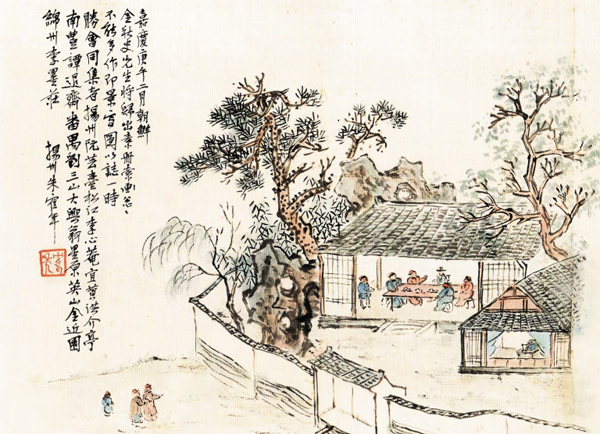 嘉慶庚午二月朝鮮
金秋史先生將歸出素冊索画忽〻
不能多作即景寫圖以誌一時
勝會同集者揚州阮芸臺松江李心菴宜黃洪介亭
南豐譚退齋番禺劉三山大興翁星原英山金近園
綿州李墨莊
揚州朱鶴年